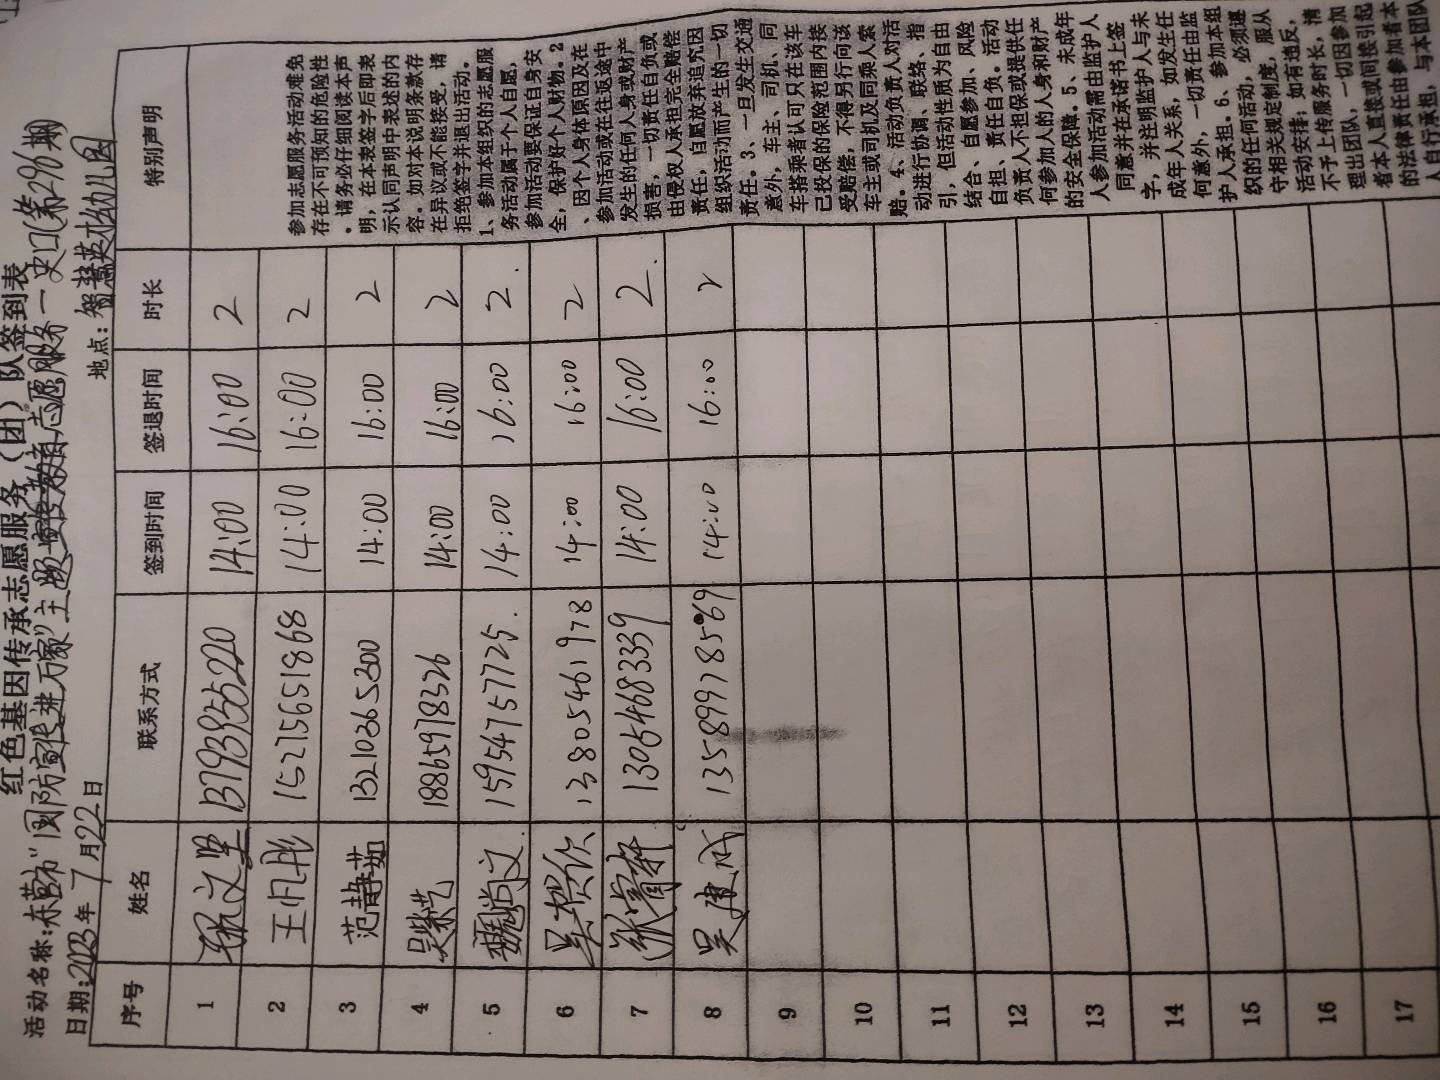 红色基因传承志愿服务（团）队签到表
活动名称:东营市"国防宣传进万家"主题宣传教育志愿服务一史口(第296期)
日期:2023年 7月22日 地点:智慧英才幼儿园
序号 姓名 联系方式 签到时间 签退时间 时长 特别声明
1 文 13793355220 14:00 16:00 2
2 王凡彤 15275651868 14:00 16:00 2
3 范静茹 13210365300 14:00 16:00 2
4 吴紫艺 18865978326 14:00 16:00 2
5 魏尚文 15954757725 14:00 16:00 2
6 吴贺欣 13805461978 14:00 16:00 2
7 张 轩 13064683339 14:00 16:00 2
8 吴建成 13589978569 14:00 16:00 2
9
10
11
12
13
14
15
16
17
参加志愿服务活动难免
存在不可预知的危险性
。请务必仔细阅读本声
明，在本表签字后即表
示认同声明中表述的内
容。如对本说明条款存
在异议或不能接受，请
拒绝签字并退出活动。
1、参加本组织的志愿服
务活动属于个人自愿，
参加活动要保证自身安
全，保护好个人财物。2
、因个人身体原因及在
参加活动或在往返途中
发生的任何人身或财产
损害，一切责任自负或
由侵权人承担完全赔偿
责任，自愿放弃追究因
组织活动而产生的一切
责任。3、一旦发生交通
意外，车主、司机、同
车搭乘者认可只在该车
已投保的保险范围内接
受赔偿，不得另行向该
车主或司机及同乘人索
赔。4、活动负责人对活
动进行协调、联络、指
引，但活动性质为自由
结合、自愿参加、风险
自担、责任自负。活动
负责人不担保或提供任
何参加人的人身和财产
的安全保障。5、未成年
人参加活动需由监护人
同意并在承诺书上签
字，并注明监护人与未
成年人关系，如发生任
何意外，一切责任由监
护人承担。6、参加本组
织的任何活动，必须遵
守相关规定制度，服从
活动安排；如有违反，
不予上传服务时长，清
理出团队，一切因参加
者本人直接或间接引起
的法律责任由参加者本
人自行承担，与本团队